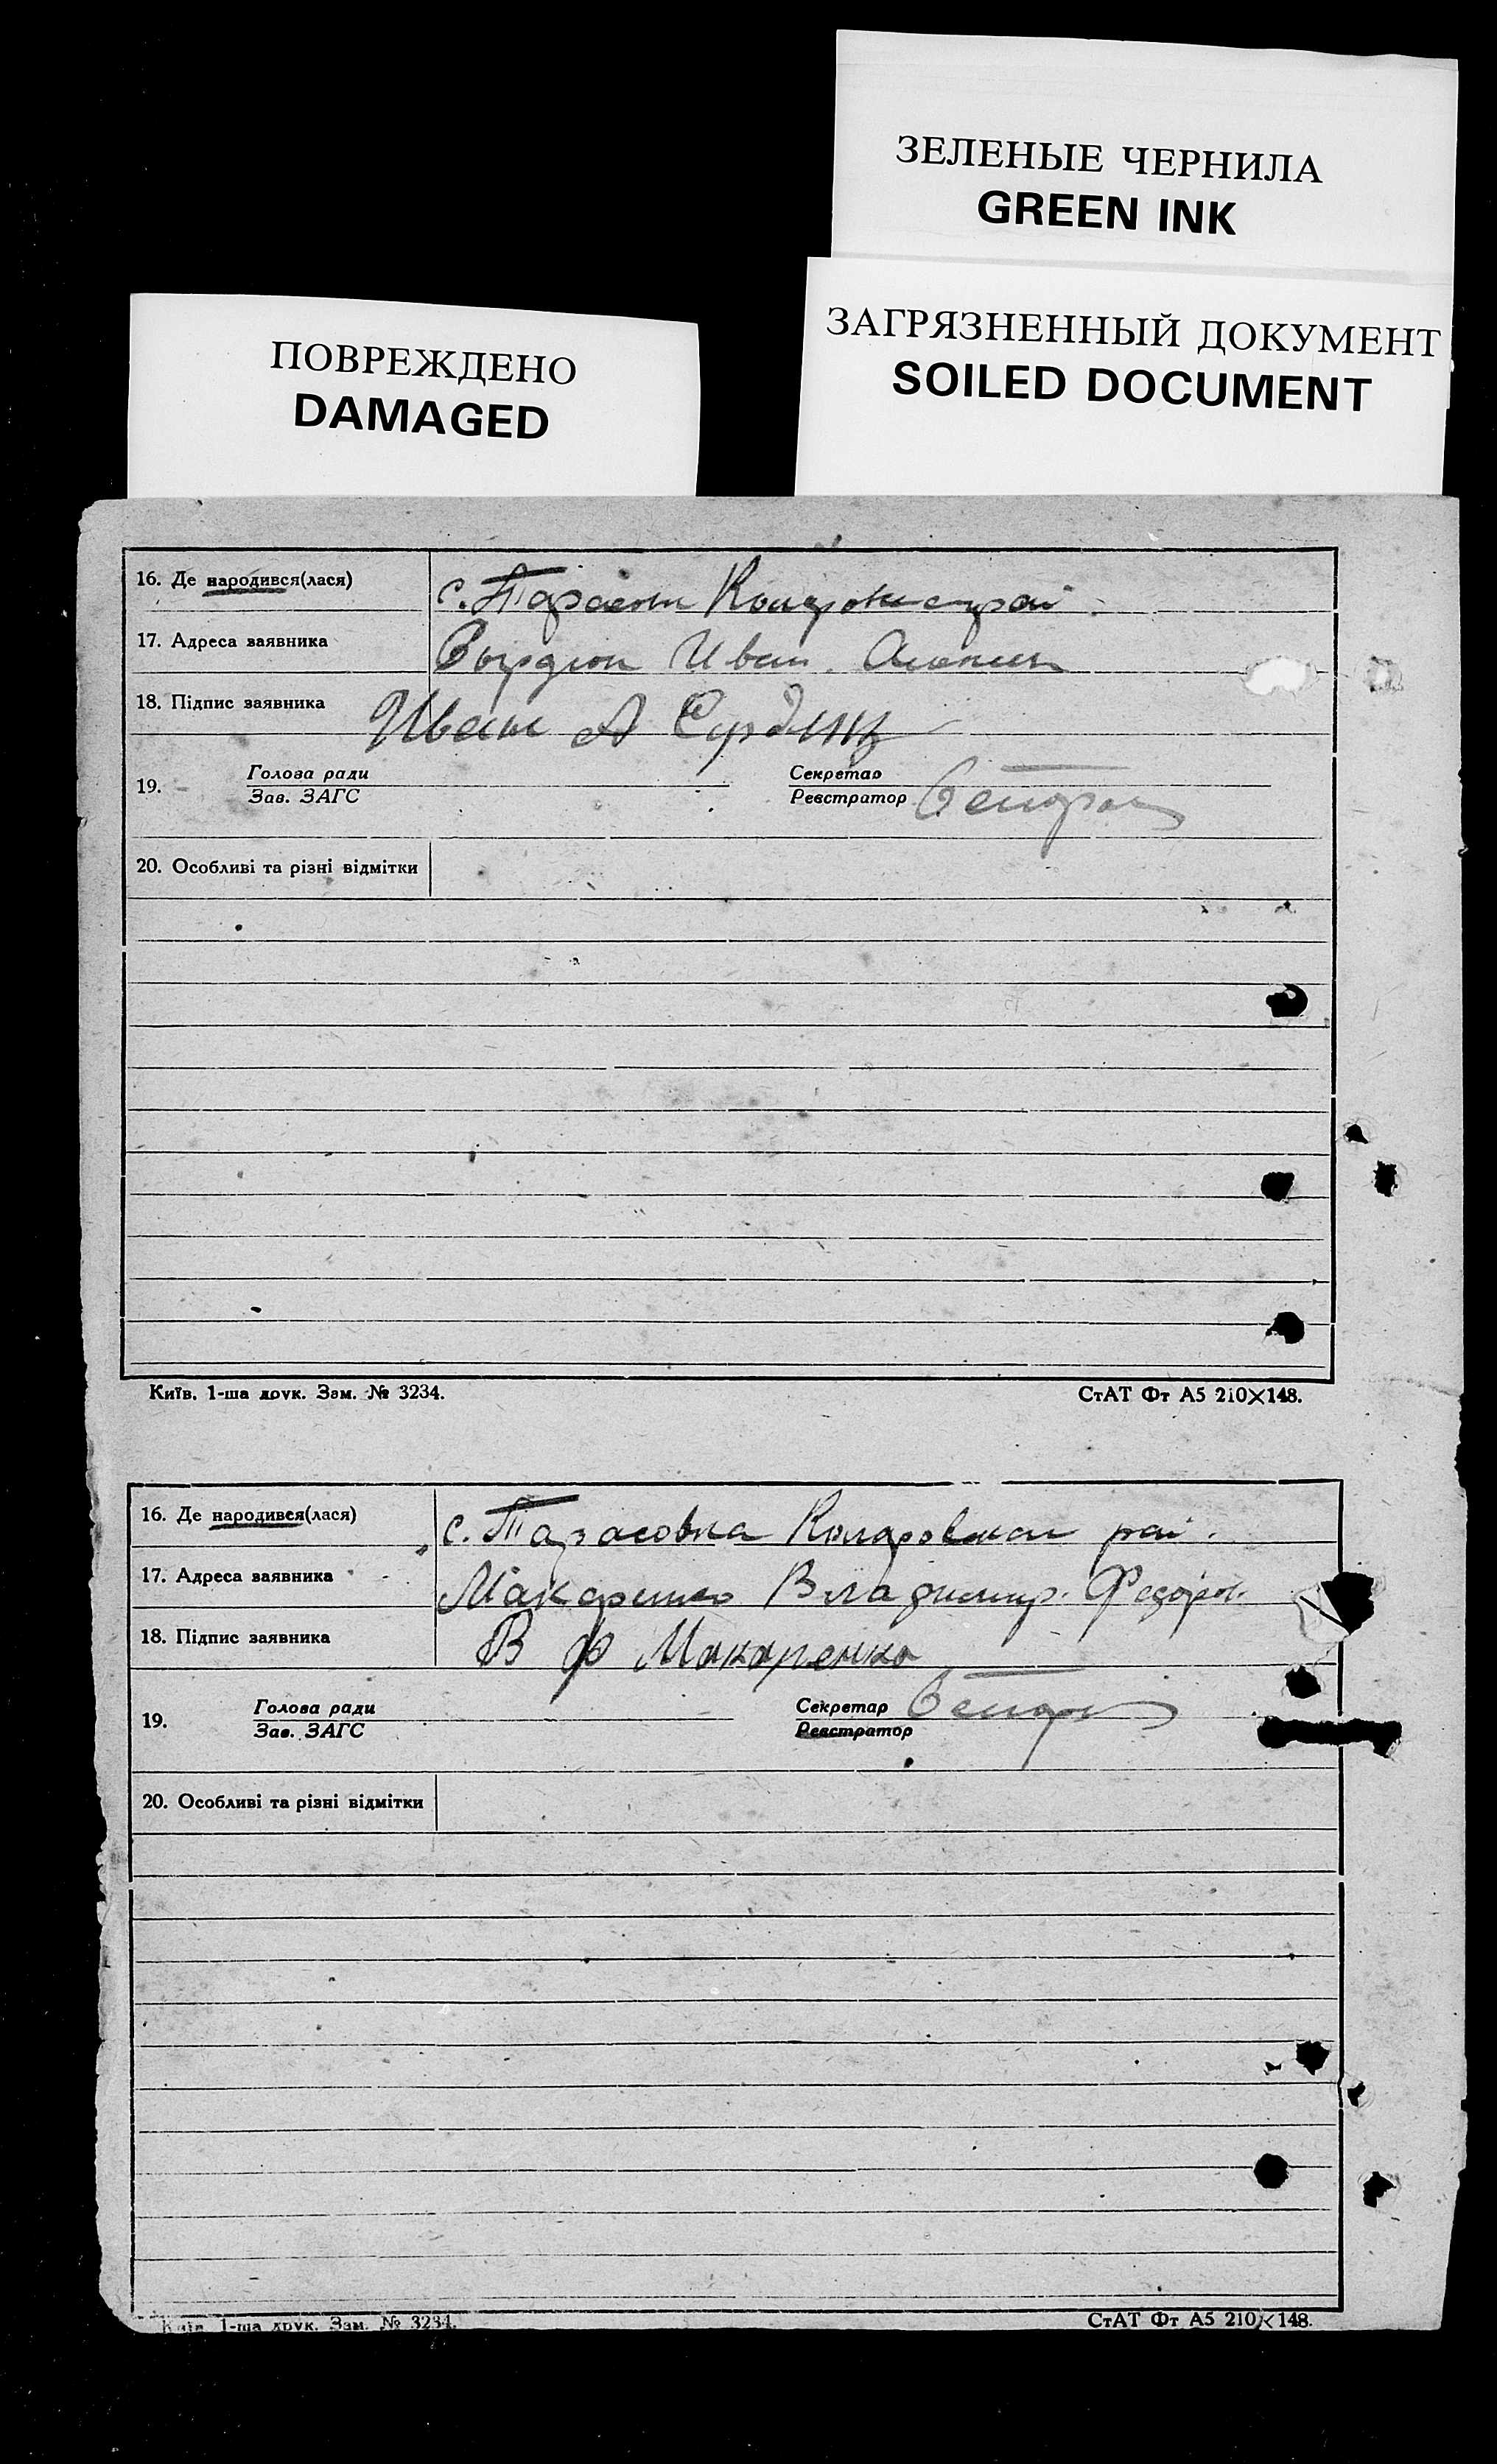 ЗЕЛЕНЫЕ ЧЕРНИЛА
GREEN INK
ЗАГРЯЗНЕННЫЙ ДОКУМЕНТ
SOILED DOCUMENT
ПОВРЕЖДЕНО
DAMAGED
16. Де народився(лася) с.
17. Адреса заявника Иван
18. Підпис заявника Иван А
19. Голова ради Секретар
Зав. ЗАГС Реєстратор
20. Особливі та різні відмітки
Київ. 1-ша друк. Зам. № 3234. СтАТ Фт А5 210×148.
16. Де народився(лася) с. Тарасовка рай.
17. Адреса заявника Макаренко Владимир. Федоров.
18. Підпис заявника В Ф Макаренко
19. Голова ради Секретар
Зав. ЗАГС Реєстратор
20. Особливі та різні відмітки
Київ. 1-ша друк. Зам. № 3234. СтАТ Фт А5 210×148.